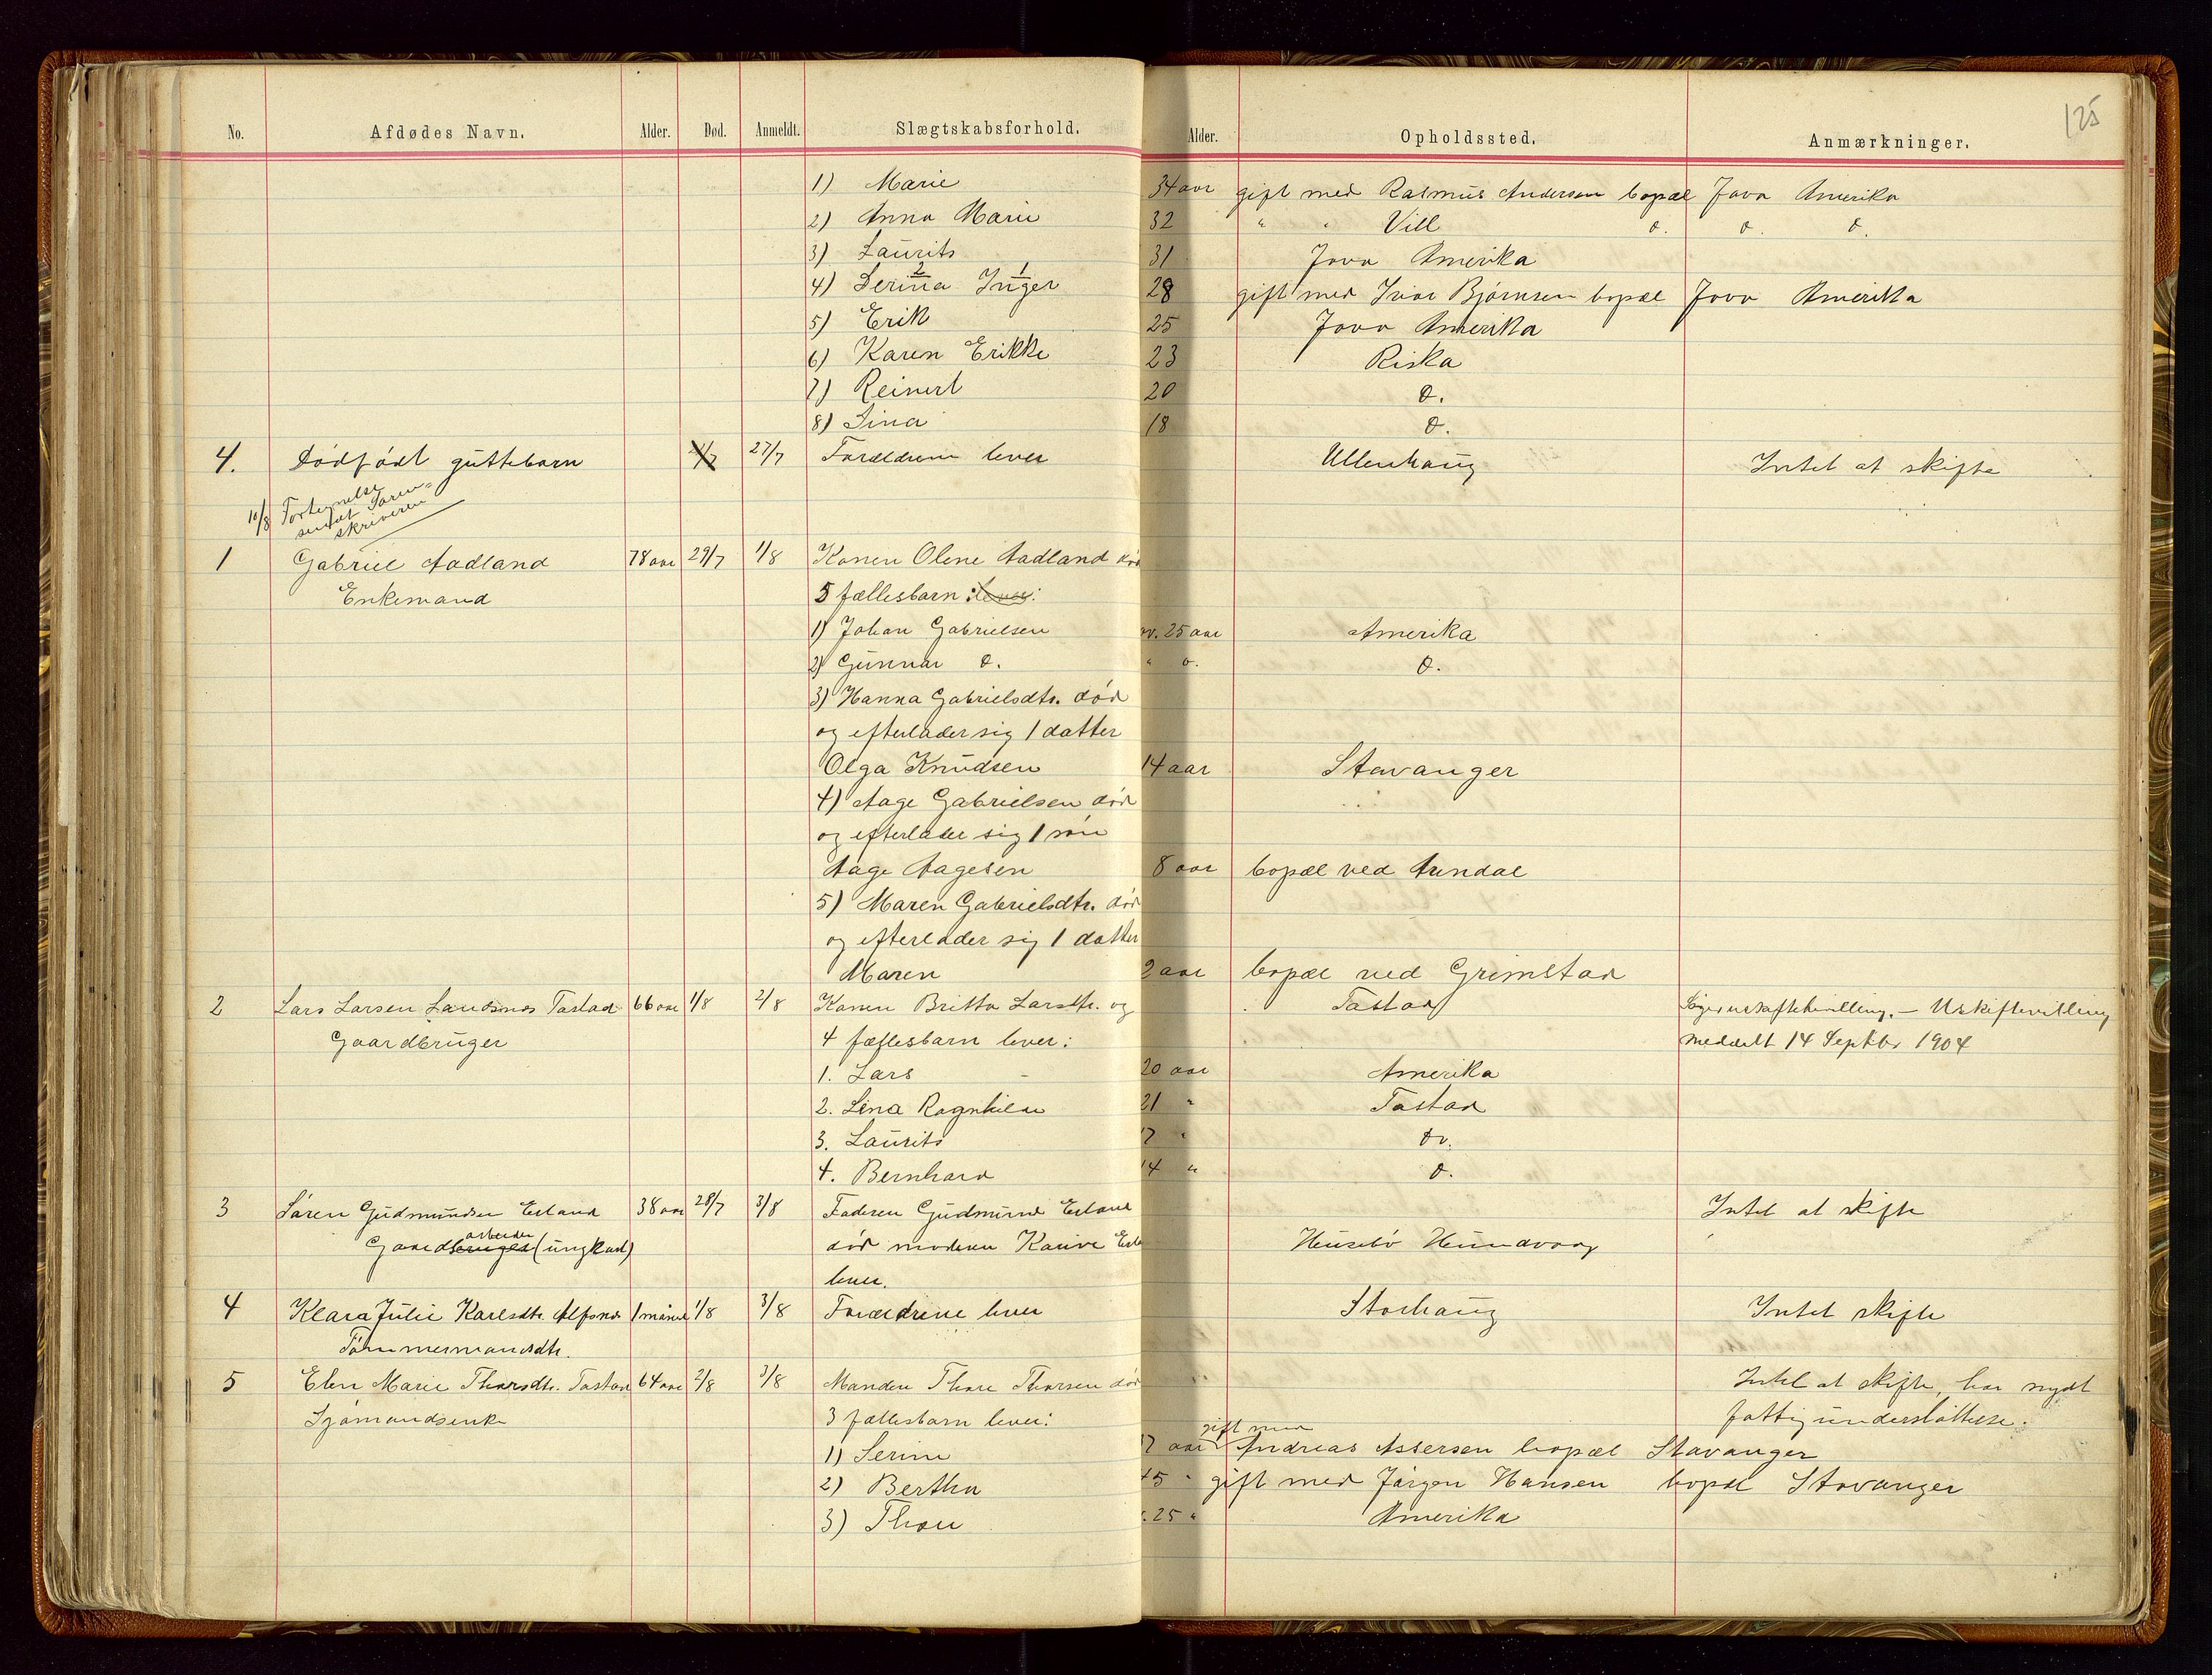 125
No. Afdødes Navn. Alder. Død. Anmeldt. Slægtskabsforhold. Alder. Opholdssted. Anmærkninger.
1) Marie 34 aar gift med Rasmus Andersen bopæl Jova Amerika
2) Anna Marie 32 " " Vill do. do. do.
3) Laurits 31 Jova Amerika
4) Serina 2 Inger 1 28 gift med Ivar Bjørnsen bopæl Jova Amerika
5) Erik 25 Jova Amerika
6) Karen Erikke 23 Riska
7) Reinert 20 do.
8) Sina 18 do.
4. Dødfødt guttebarn 27/7 Forældrene lever Ullenhaug Intet at skifte
10/8 Fortegnelse
sendt Soren=
skriveren
1 Gabriel Aadland 78 aar 29/7 1/8 Konen Olene Aadland død
Enkemand 5 fællesbarn :lever:
1) Johan Gabrielsen ov. 25 aar Amerika
2) Gunnar do. " o. do.
3) Hanna Gabrielsdtr. død
og efterlader sig 1 datter
Olga Knudsen 14 aar Stavanger
4) Aage Gabrielsen død
og efterlader sig 1 søn
Aage Aagesen 8 aar bopæl ved Arendal
5) Maren Gabrielsdtr. død
og efterlader sig 1 datter
Maren 2 aar bopæl ved Grimstad
2 Lars Larsen Tastad 66 aar 1/8 2/8 Konen Britta Larsdtr. og Tastad Uskiftevilling
Gaardbruger 4 fællesbarn lever: meddelt 14 Septbr 1904
1. Lars 20 aar Amerika
2. Lina Ragnhild 21 " Tastad
3. Laurits 17 " do.
4. Bernhard 14 " do.
3 Søren Gudmundsen Erland 38 aar 28/7 3/8 Faderen Gudmund Erland Intet at skifte
arbeider
Gaardbruger (ungkarl) død moderen Husebø Hundvaag
lever.
4 Klara Julie Karlsdtr. Alfsnes 1 måned 1/8 3/8 Forældrene lever Storhaug Intet skifte
Tømmermandsdtr.
5 Elen Marie Thorsdtr. Tastad 64 aar 2/8 3/8 Manden Thore Thorsen død Intet at skifte, har nydt
Sjømandsenke 3 fællesbarn lever: fattigunderstøttelse.
gift med
1) Serine aar Andreas Assersen bopæl Stavanger
2) Bertha 45 " gift med Jørgen Hansen bopæl Stavanger
3) Thore 25 " Amerika